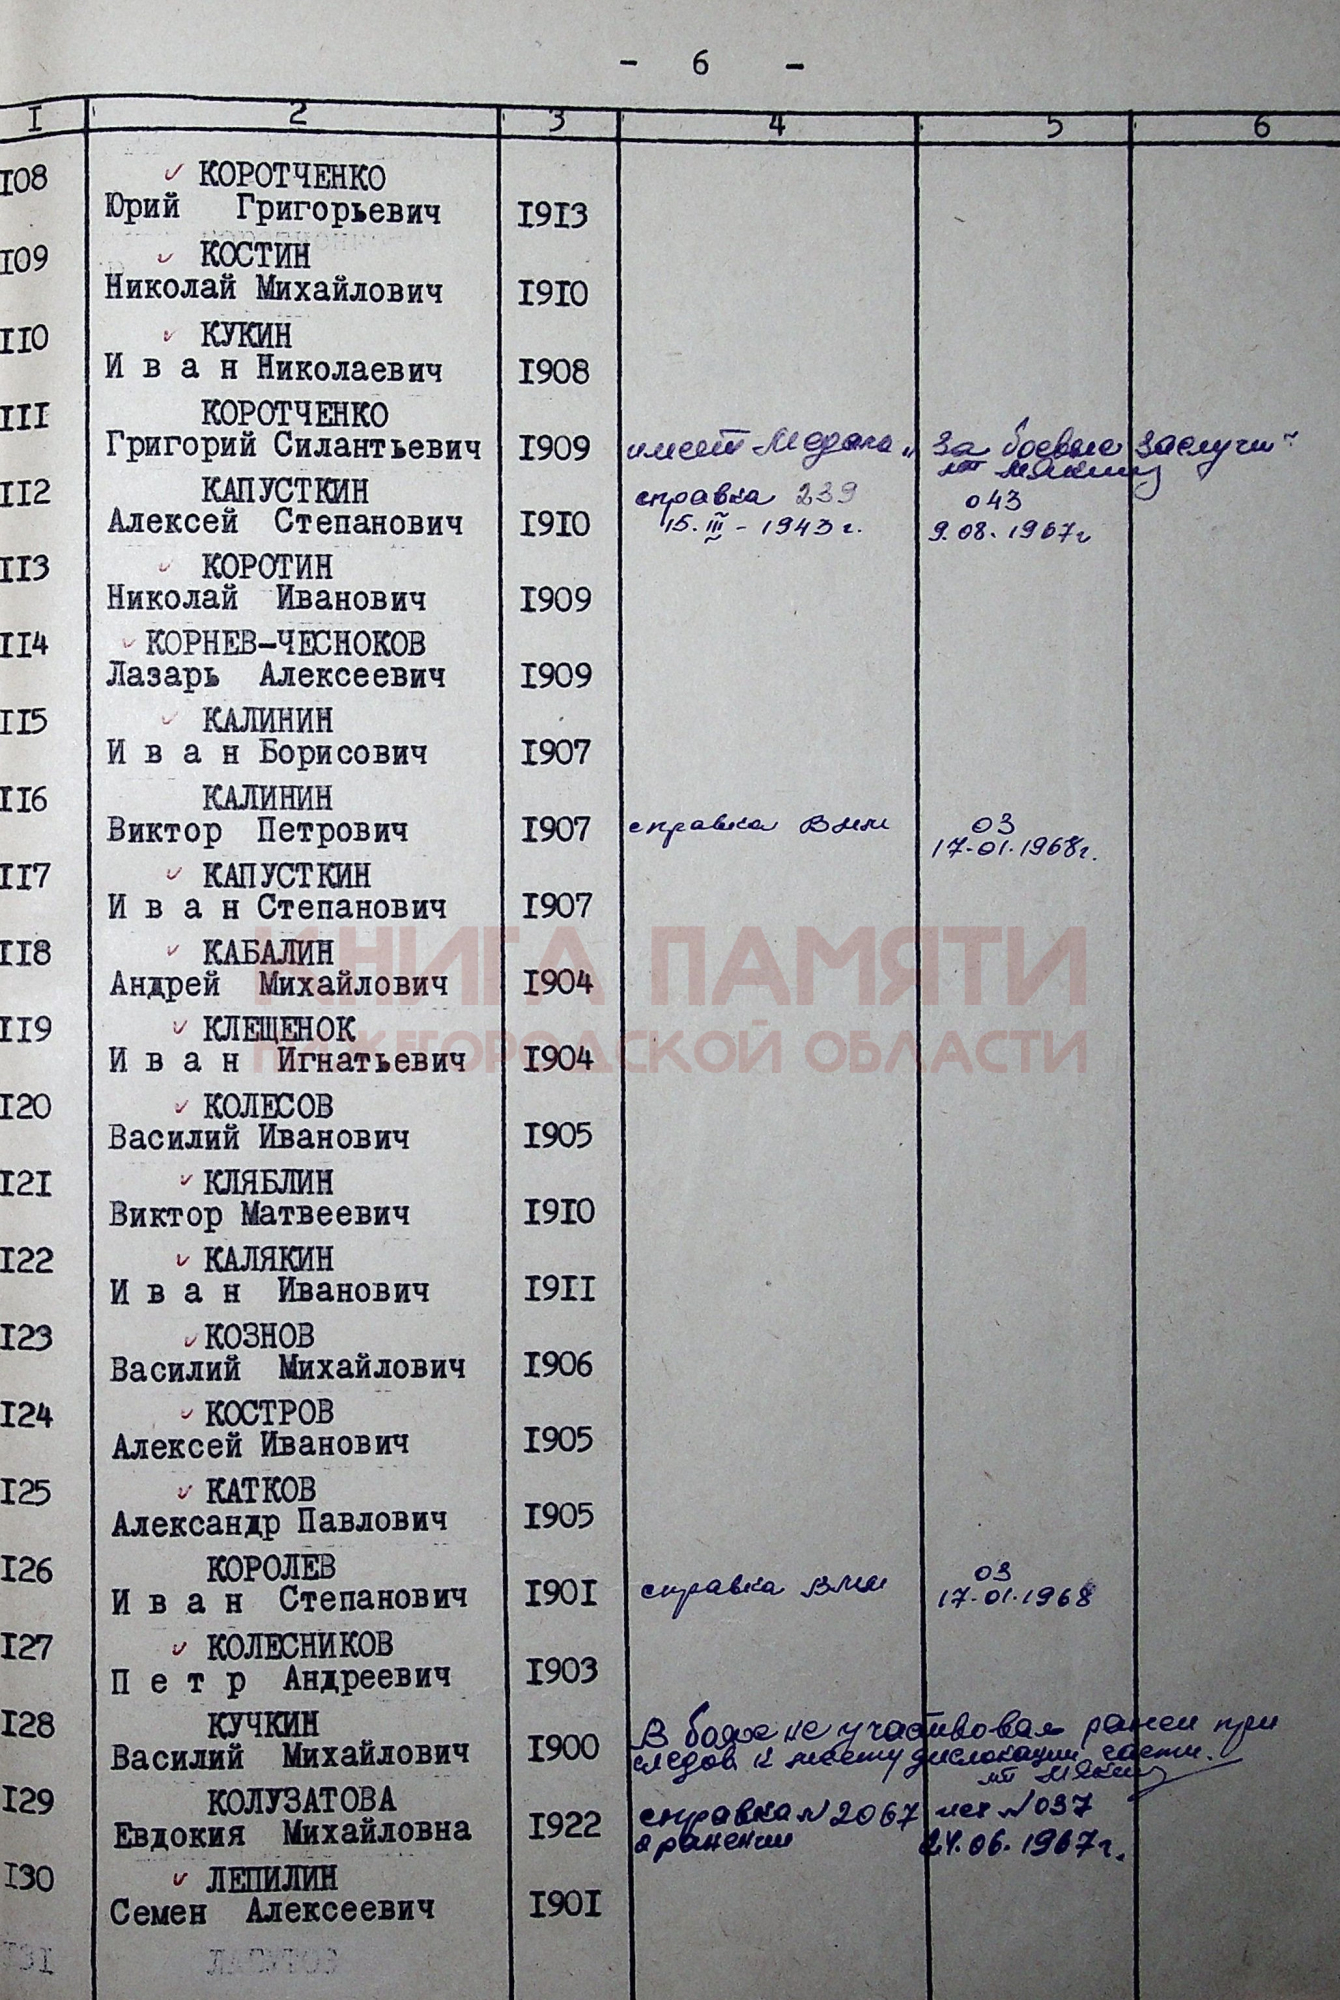 - 6 -
I 2 3 4 5 6
I08 КОРОТЧЕНКО
Юрий Григорьевич I9I3
I09 КОСТИН
Николай Михайлович I9I0
II0 КУКИН
И в а н Николаевич I908
III КОРОТЧЕНКО
Григорий Силантьевич I909 имеет Медаль „За боевые заслуги“
II2 КАПУСТКИН справка 239 043
Алексей Степанович I9I0 15.III-1943г. 9.08.1967г
II3 КОРОТИН
Николай Иванович I909
II4 КОРНЕВ-ЧЕСНОКОВ
Лазарь Алексеевич I909
II5 КАЛИНИН
И в а н Борисович I907
II6 КАЛИНИН
Виктор Петрович I907 справка 03
17.01.1968г.
II7 КАПУСТКИН
И в а н Степанович I907
II8 КАБАЛИН
Андрей Михайлович I904
КНИГА ПАМЯТИ
II9 КЛЕЩЕНОК
И в а н Игнатьевич I904
НИЖЕГОРОДСКОЙ ОБЛАСТИ
I20 КОЛЕСОВ
Василий Иванович I905
I2I КЛЯБЛИН
Виктор Матвеевич I9I0
I22 КАЛЯКИН
И в а н Иванович I9II
I23 КОЗНОВ
Василий Михайлович I906
I24 КОСТРОВ
Алексей Иванович I905
I25 КАТКОВ
Александр Павлович I905
I26 КОРОЛЕВ 03
И в а н Степанович I90I справка 17.01.1968
I27 КОЛЕСНИКОВ
П е т р Андреевич I903
I28 КУЧКИН В боях не участвовал ранен при
Василий Михайлович I900 следов. к месту дислокации части.
I29 КОЛУЗАТОВА справка N 2067 исх N 037
Евдокия Михайловна I922 о ранении 24.06.1967г.
I30 ЛЕПИЛИН
Семен Алексеевич I90I